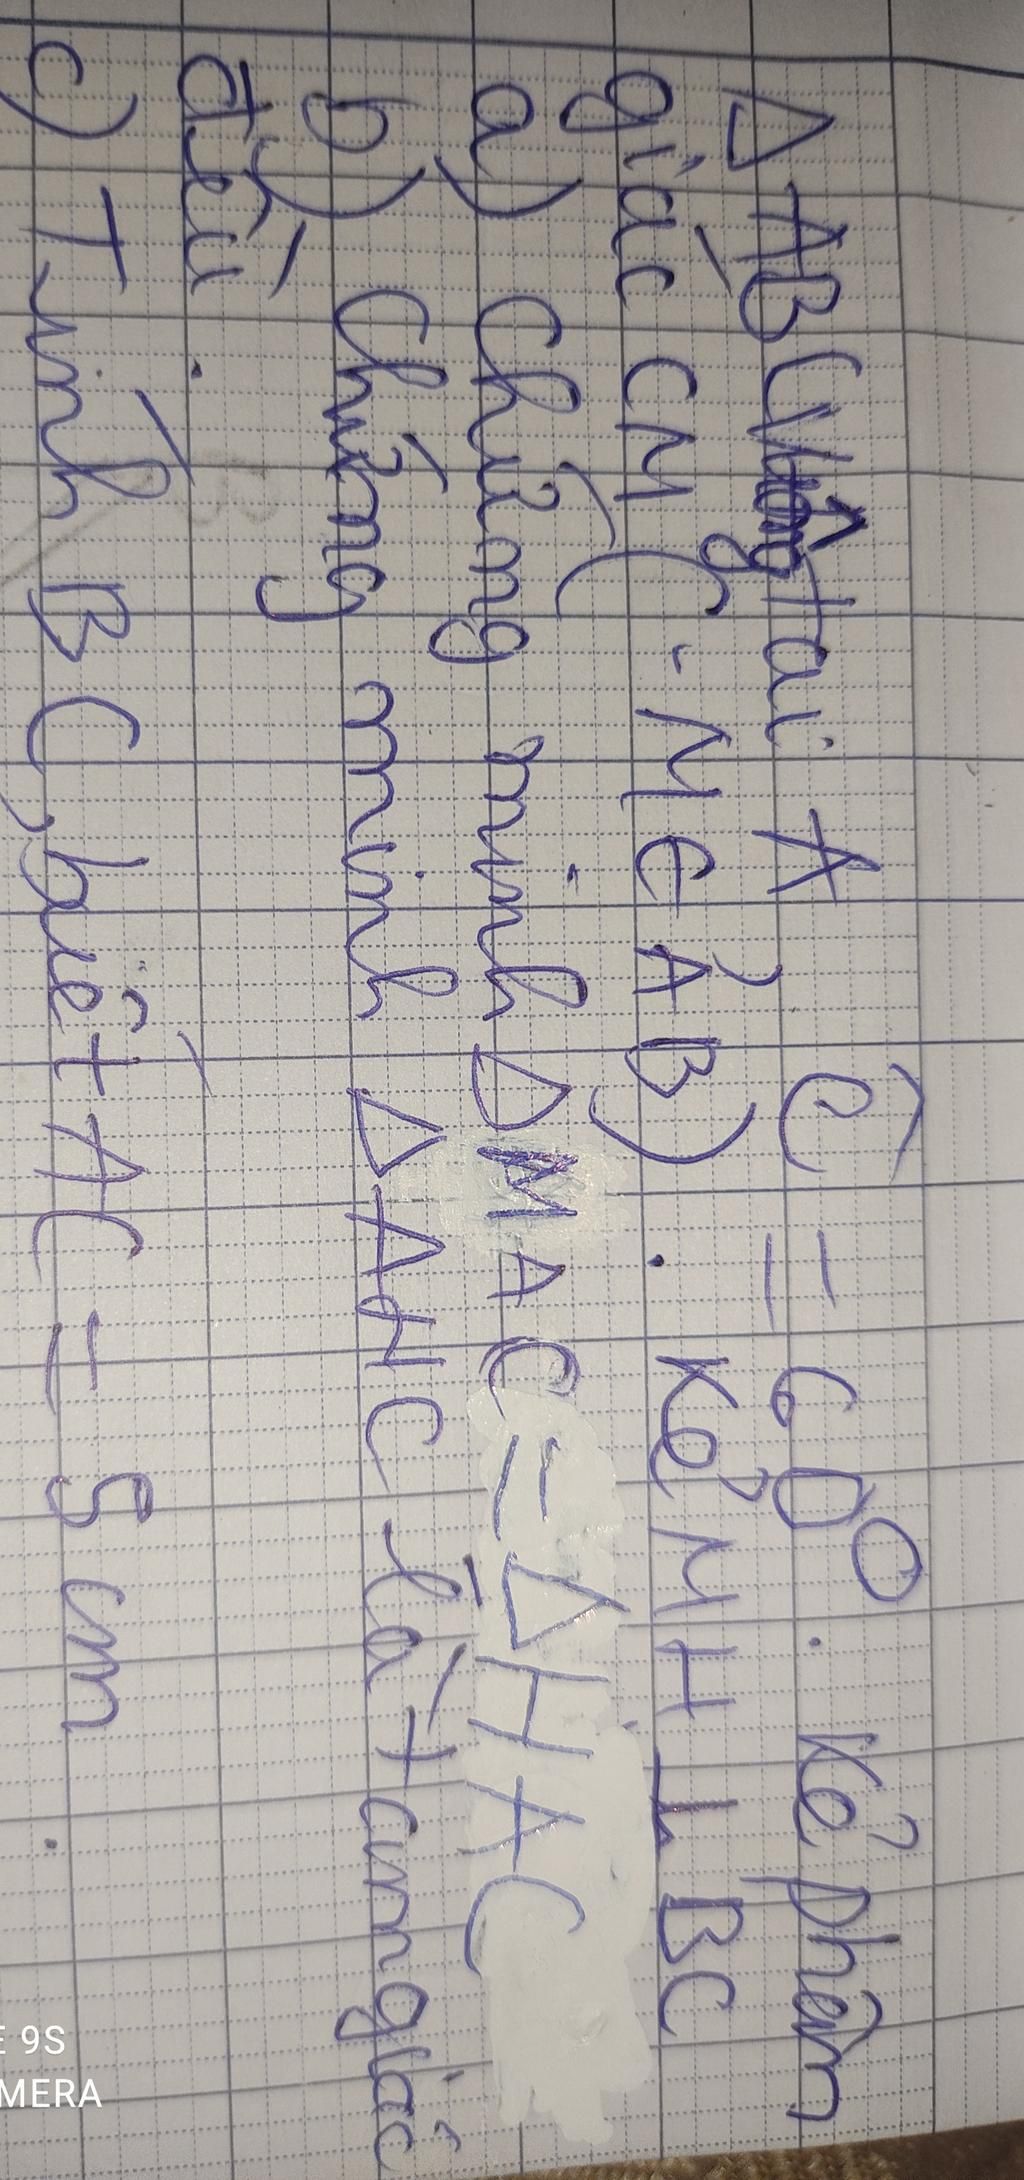 Δ ABC vuông tại A Ĉ = 60°. Kẻ phân
giác CM (M ∈ AB). Kẻ MH ⊥ BC
a) Chứng minh Δ MAC = Δ HAC
b) Chứng minh Δ AHC là tam giác
đều.
c) Tính BC, biết AC = 5 cm.
9S
MERA